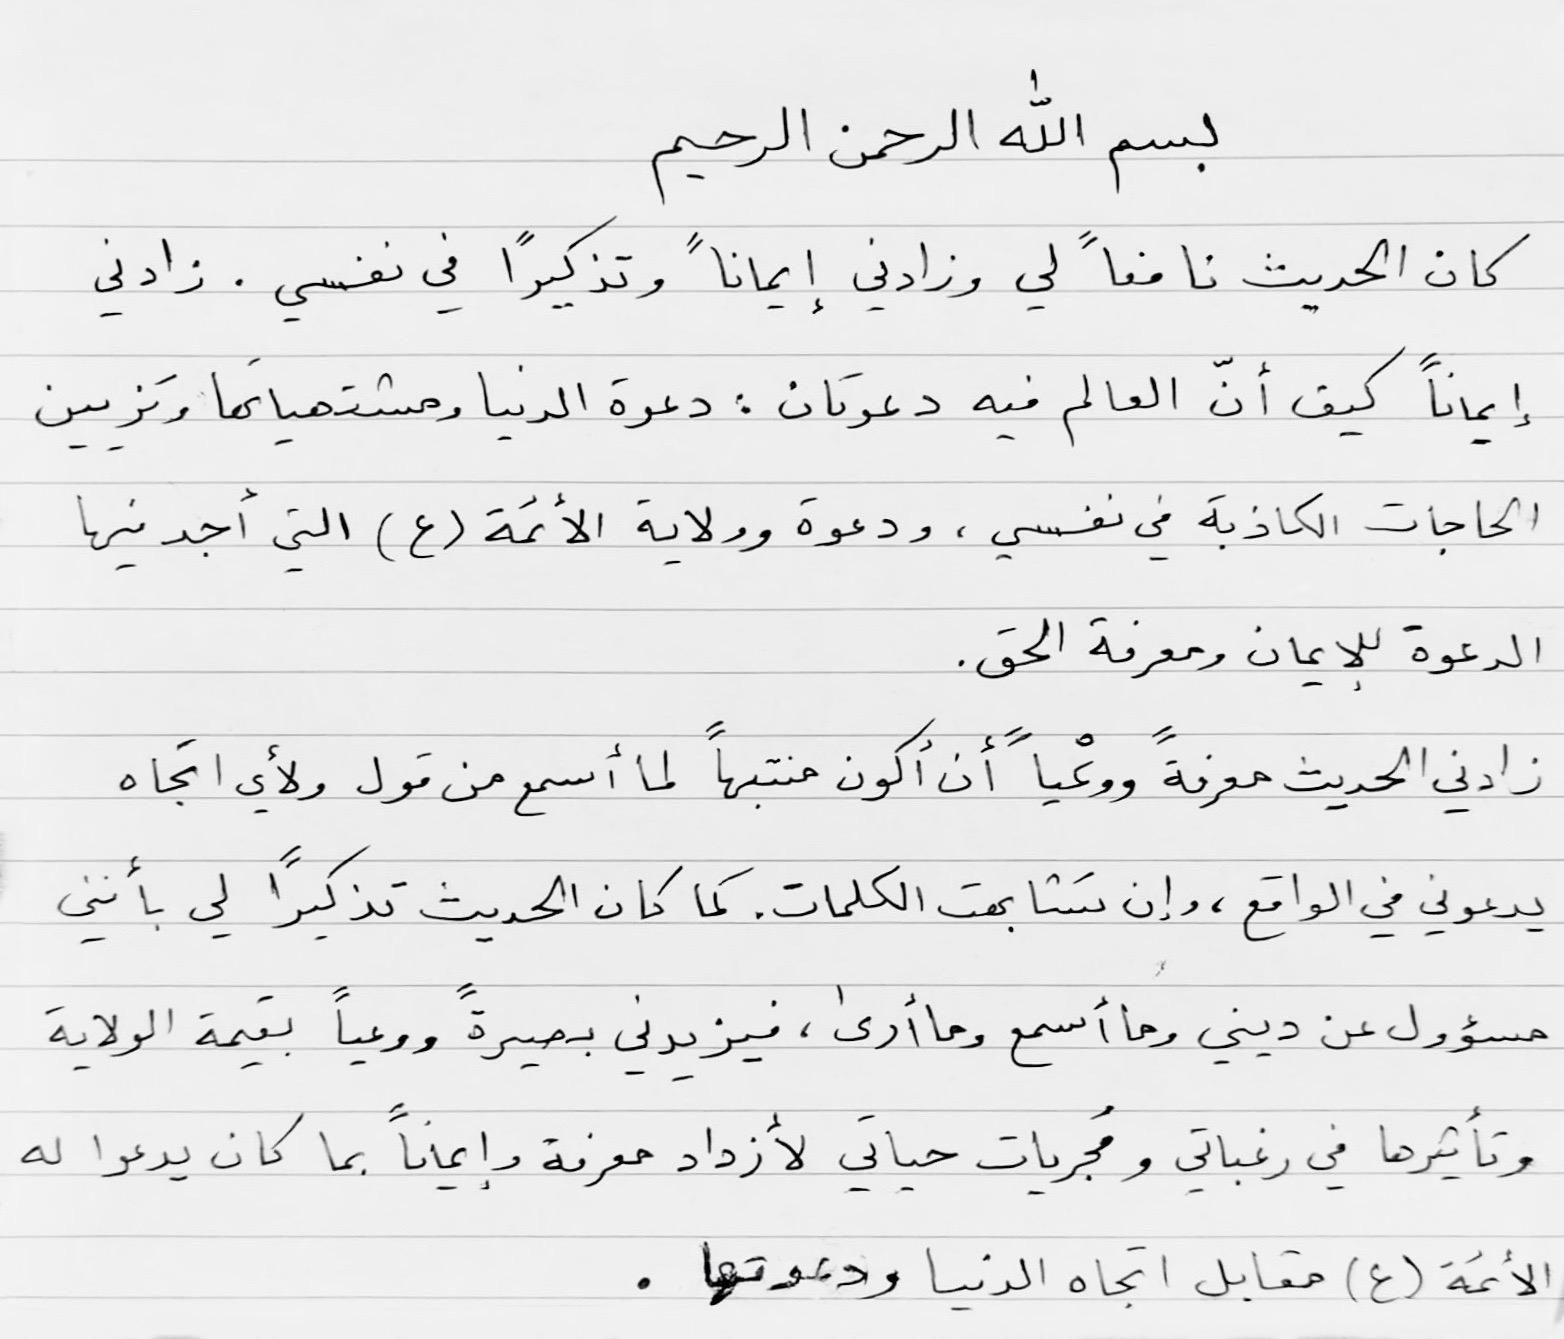 بسم الله الرحمن الرحيم
كان الحديث نافعاً لي وزادني إيماناً وتذكيرًا في نفسي . زادني
إيماناً كيف أنّ العالم فيه دعوتان : دعوة الدنيا ومشتهياتها وتزيين
الحاجات الكاذبة في نفسي ، ودعوة وولاية الأئمة (ع) التي أجد فيها
الدعوة للإيمان ومعرفة الحق .
زادني الحديث معرفةً ووعْياً أن أكون منتبهاً لما أسمع من قول ولأي اتجاه
يدعوني في الواقع ، وإن تشابهت الكلمات . كما كان الحديث تذكيرًا لي بأنني
مسؤول عن ديني وما أسمع وما أرى ، فيزيدني بصيرةً ووعياً بقيمة الولاية
وتأثيرها في رغباتي ومُجريات حياتي لأزداد معرفة وإيماناً بما كان يدعوا له
الأئمة (ع) مقابل اتجاه الدنيا ودعوتها .